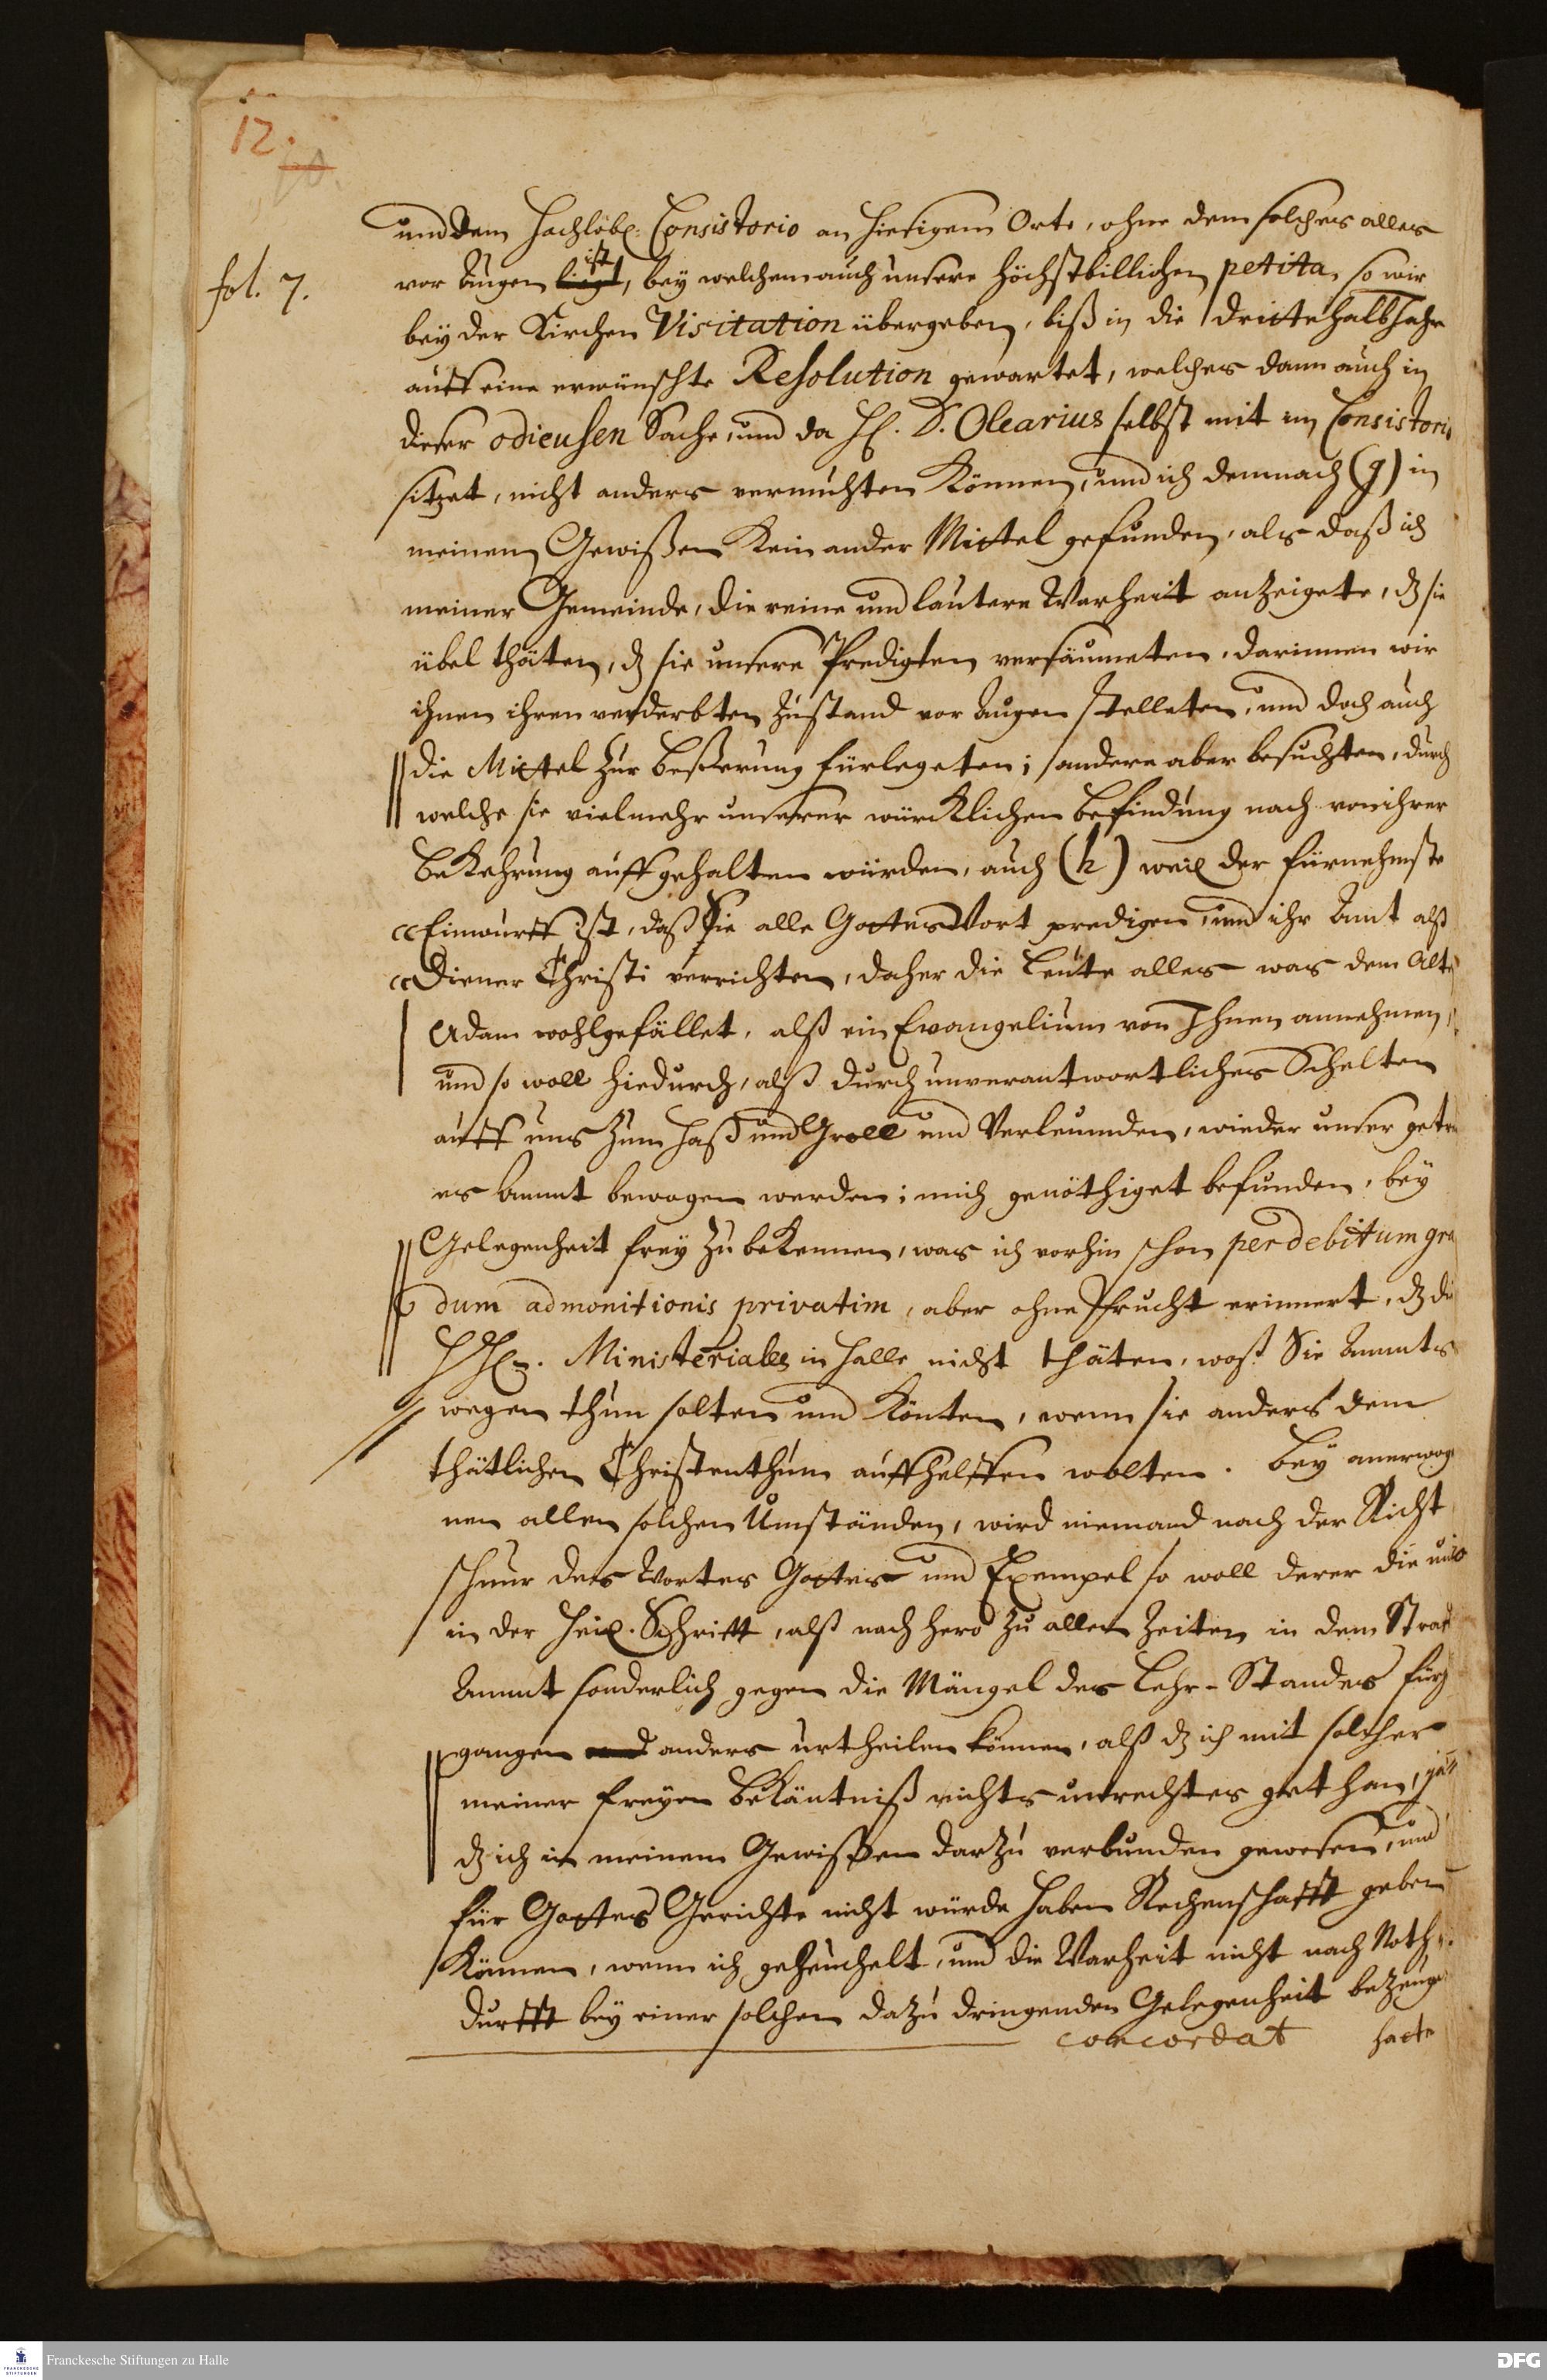 12.
fol. 7.
und dem Hochlöbl: Consistorio an hiesigem Orte, ohne dem solches alles
vor Augen liegt ist, bey welchem auch unsere höchstbillichen petita, so wir
bey der Kirchen Visitation übergeben, biß in die dritte halb Jahr
auff eine erwünschte Resolution gewartet, welches dann auch in
dieser odieusen Sache, und da H. D. Olearius selbst mit im Consistorio
sitzet, nicht anders vermuhten können, und ich demnach (g) in
meinem Gewißen kein ander Mittel gefunden, als daß ich
meiner Gemeinde, die reine und lautere Warheit anzeigete, dz sie
übel thäten, dz sie unsere Predigten versäumeten, darinnen wir
ihnen ihren verderbten Zustand vor Augen stelleten, und doch auch
die Mittel zur beßerung fürlegeten; andere aber besuchten, durch
welche sie vielmehr unserer würcklichen befindung nach von ihrer
bekehrung auffgehalten würden, auch (h) weil der fürnehmste
Einwurff ist, daß Sie alle Gottes Wort predigen, und ihr Amt alß
Diener Christi verrichten, daher die Leute alles was dem Alten
Adam wohlgefället, alß ein Evangelium von Ihnen annehmen,
und so woll hiedurch, alß durch unverantwortliches Schelten
auff uns zum Haß und Groll und Verleumden, wieder unser getreu
es Ammt bewogen werden; mich genöthiget befunden, bey
Gelegenheit frey zu bekennen, was ich vorhin schon per debitum gra
dum admonitionis privatim, aber ohne Frucht erinnert, dz die
HHn. Ministeriales in Halle nicht thäten, waß Sie Ammts
wegen thun solten und könten, wenn sie anders dem
thätlichen Christenthum auffhelffen wolten. Bey anerwoge
nen allen solchen Umständen, wird niemand nach der Richt
schnur des Wortes Gottes und Exempel so woll derer die uns
in der Heil. Schrifft, alß nach hero zu allen Zeiten in dem Straf
Ammt sonderlich gegen die Mängel des Lehr-Standes fürge
gangen und anders urtheilen können, alß dz ich mit solcher
meiner freyen bekäntniß nichts unrechtes gethan, ja
dz ich in meinem Gewissen darzu verbunden gewesen, und
für Gottes Gerichte nicht würde haben Rechenschafft geben
können, wenn ich geheuchelt, und die Warheit nicht nach Noth
durfft bey einer solchen dazu dringenden Gelegenheit bezeuget
concordat hette
Franckesche Stiftungen zu Halle
DFG